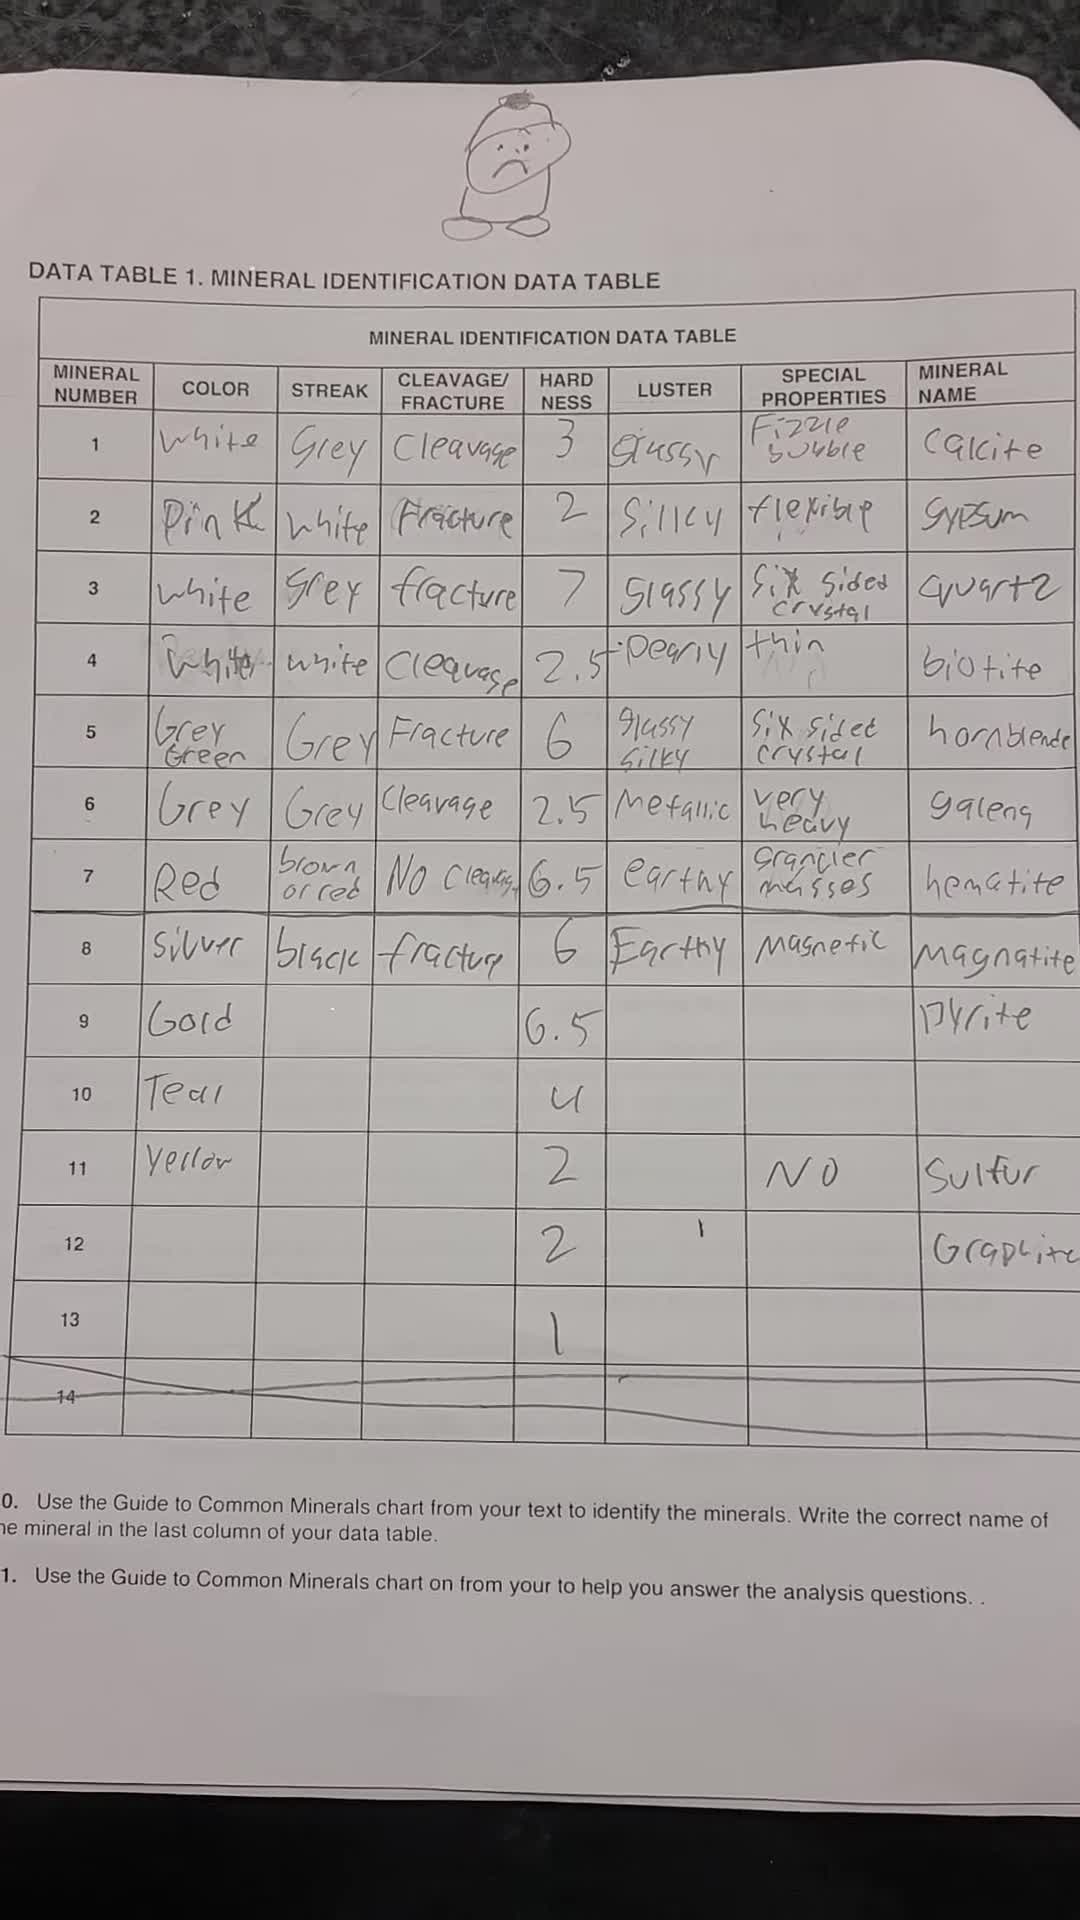 DATA TABLE 1. MINERAL IDENTIFICATION DATA TABLE
MINERAL IDENTIFICATION DATA TABLE
MINERAL NUMBER COLOR STREAK CLEAVAGE/ FRACTURE HARD NESS LUSTER SPECIAL PROPERTIES MINERAL NAME
1 white Grey Cleavage 3 glassy Fizzle bubble Calcite
2 Pink white Fracture 2 Silky flexible Gypsum
3 white Grey fracture 7 glassy Six sided crystal Quartz
4 white white Cleavage 2.5 pearly thin biotite
5 Grey Green Grey Fracture 6 glassy silky Six sided crystal hornblende
6 Grey Grey Cleavage 2.5 Metallic very heavy galena
7 Red brown or red No 6.5 earthy masses hematite
8 Silver black fracture 6 Earthy Magnetic Magnatite
9 Gold 6.5 Pyrite
10 Teal 4
11 Yellow 2 NO Sulfur
12 2 Graphite
13 1
14
0. Use the Guide to Common Minerals chart from your text to identify the minerals. Write the correct name of
he mineral in the last column of your data table.
1. Use the Guide to Common Minerals chart on from your to help you answer the analysis questions. .